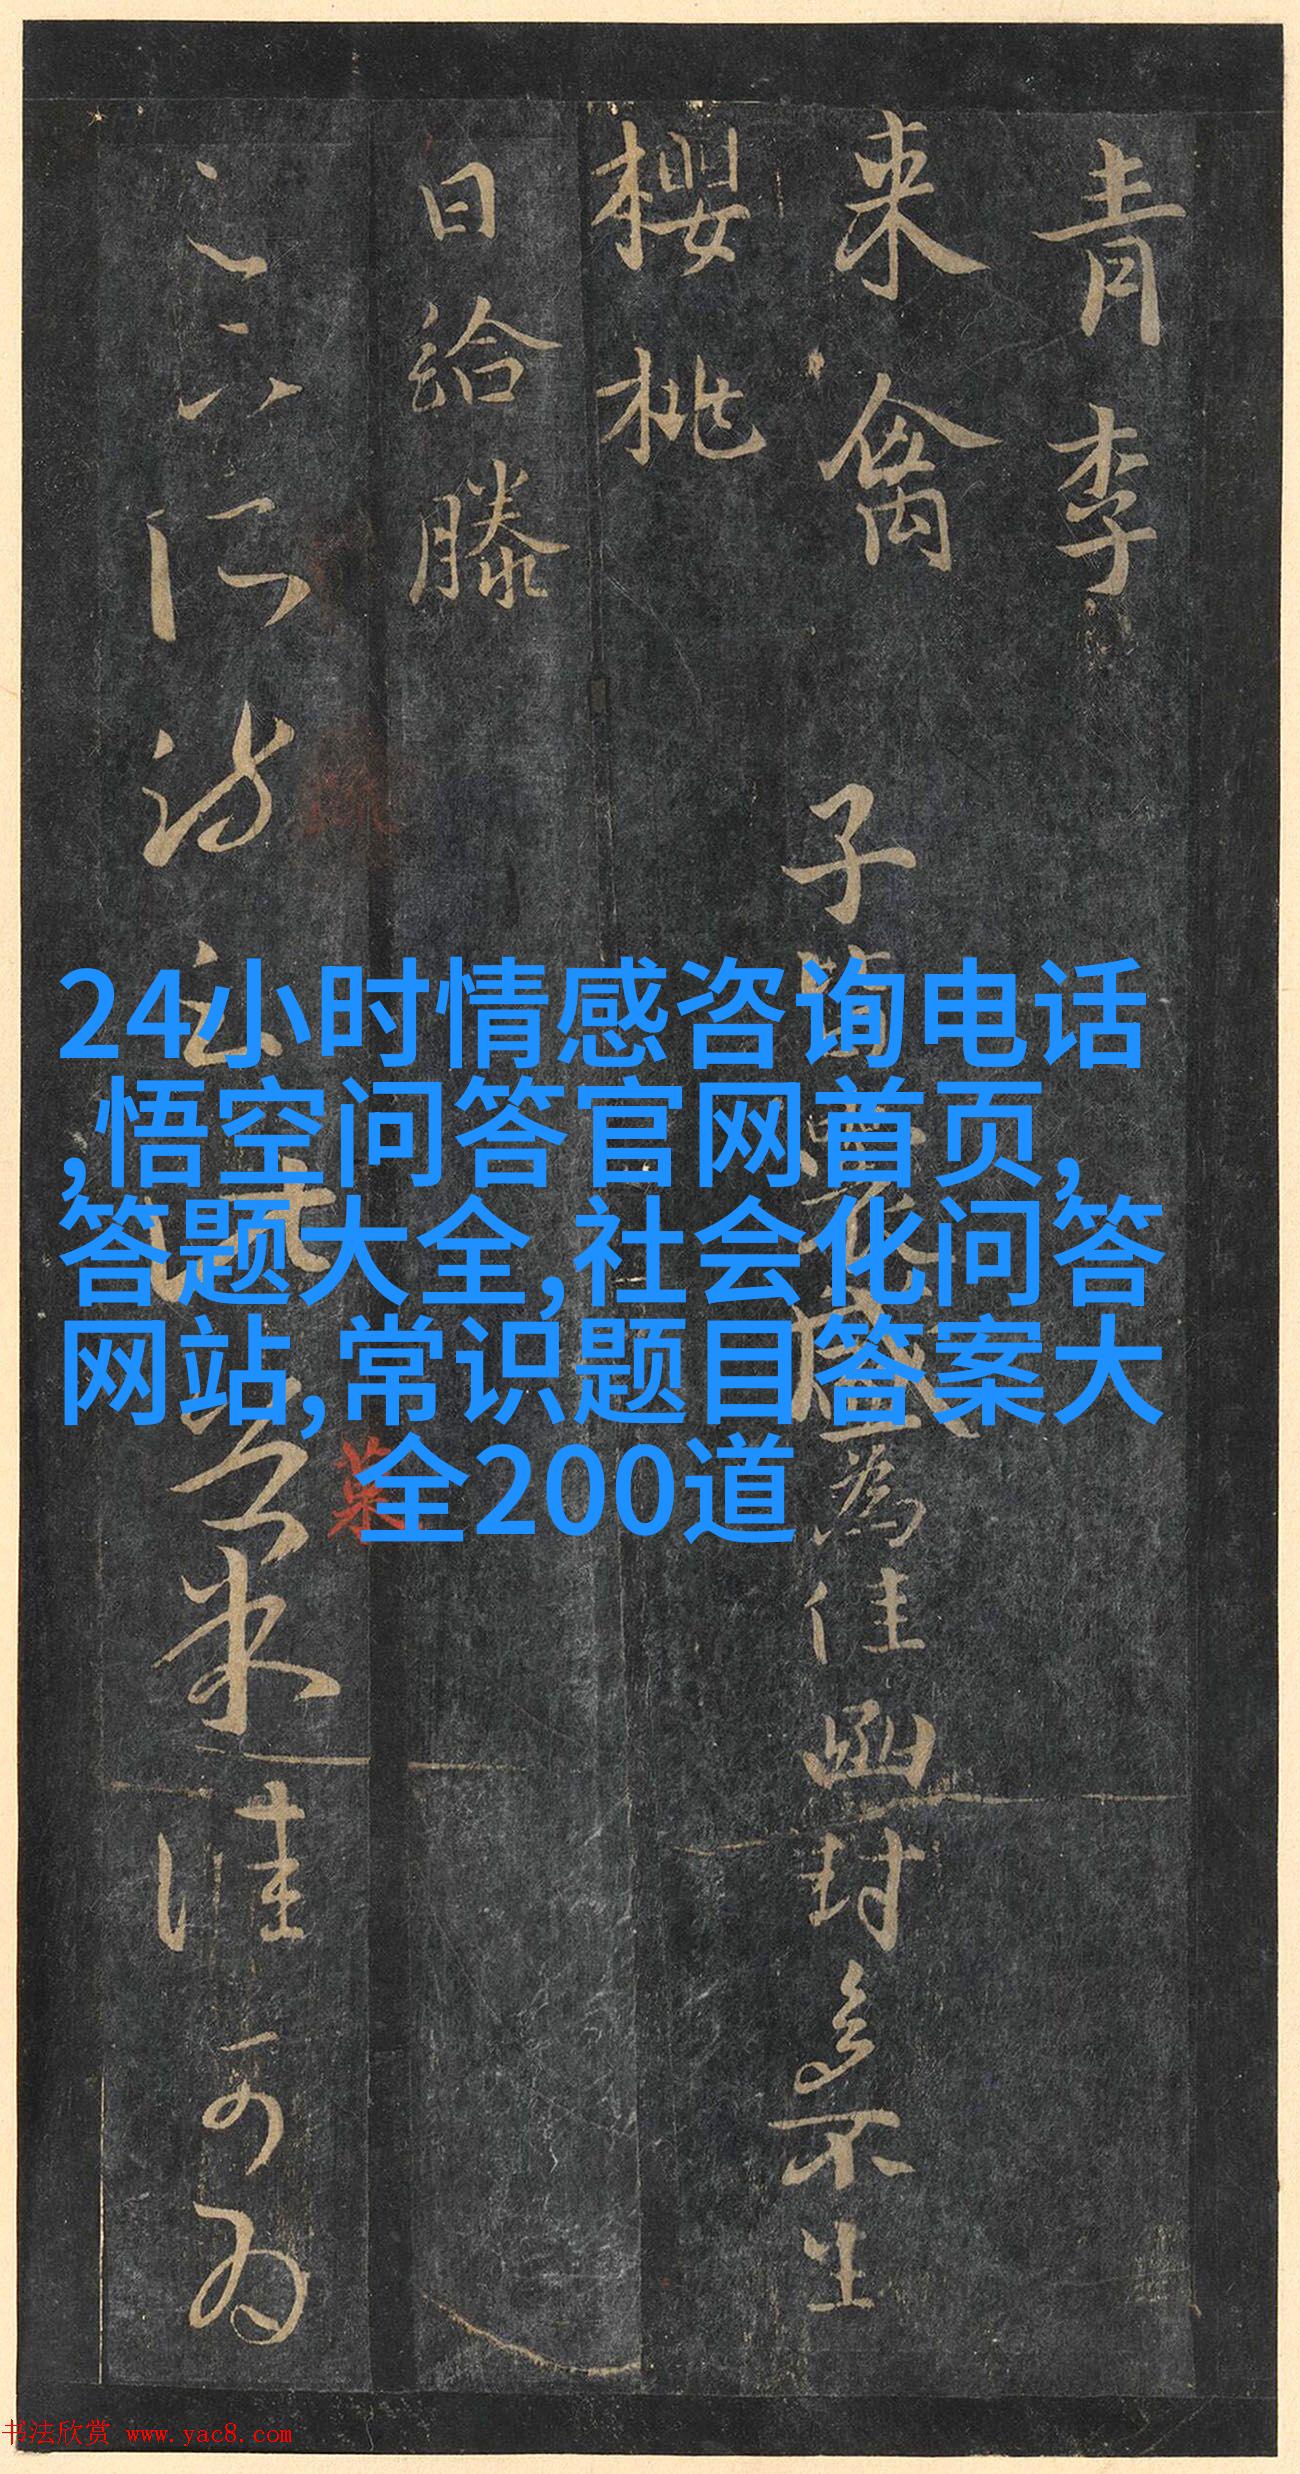 青李
来禽
子皆囊盛為佳函封多不生
櫻桃
日給滕
足下所疏云此果佳可为
24小时情感咨询电话
,悟空问答官网首页,
答题大全,社会化问答
网站,常识题目答案大
全200道
书法欣赏 www.yac8.com